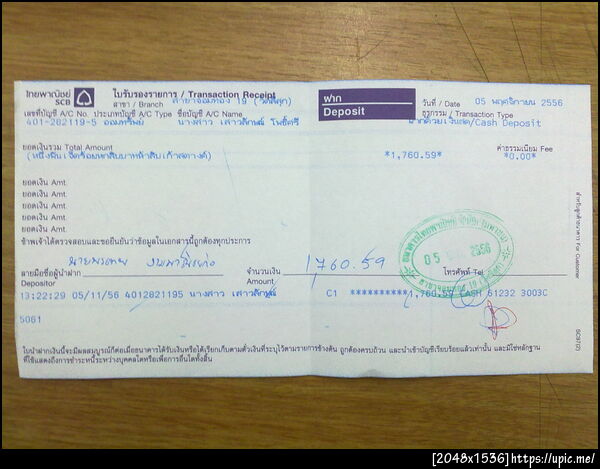 ไทยพาณิชย์
SCB
ใบรับรองรายการ / Transaction Receipt
สาขา / Branch สาขาจอมทอง 19 (วัดสีสุก)
ฝาก
Deposit
วันที่ / Date 05 พฤศจิกายน 2556
เลขที่บัญชี A/C No. ประเภทบัญชี A/C Type ชื่อบัญชี A/C Name
ธุรกรรม / Transaction Type
401-282119-5 ออมทรัพย์ นางสาว เสาวลักษณ์ โพธิ์ศรี
ฝากด้วยเงินสด/Cash Deposit
ยอดเงินรวม Total Amount
ค่าธรรมเนียม Fee
(หนึ่งพันเจ็ดร้อยหกสิบบาทห้าสิบเก้าสตางค์) *1,760.59* *0.00*
ยอดเงิน Amt.
ยอดเงิน Amt.
ยอดเงิน Amt.
ยอดเงิน Amt.
ยอดเงิน Amt.
ข้าพเจ้าได้ตรวจสอบและขอยืนยันว่าข้อมูลในเอกสารนี้ถูกต้องทุกประการ
05 2556
1760.59
ลายมือชื่อผู้นำฝาก
Depositor
จำนวนเงิน
Amount
โทรศัพท์ Tel
13:22:29 05/11/56 4012821195 นางสาว เสาวลักษณ์ C1 **********1,760.59 CASH 61232 3003C
5061
ใบนำฝากเงินนี้จะมีผลสมบูรณ์ก็ต่อเมื่อธนาคารได้รับเงินหรือได้เรียกเก็บตามตั๋วเงินที่ระบุไว้ตามรายการข้างต้น ถูกต้องครบถ้วน และนำเข้าบัญชีเรียบร้อยแล้วเท่านั้น และมิใช่หลักฐาน
ที่ใช้แสดงถึงการชำระหนี้ระหว่างบุคคลใดหรือเพื่อการอื่นใดทั้งสิ้น
สำหรับลูกค้าธนาคาร For Customer
[2048x1536]https://upic.me/